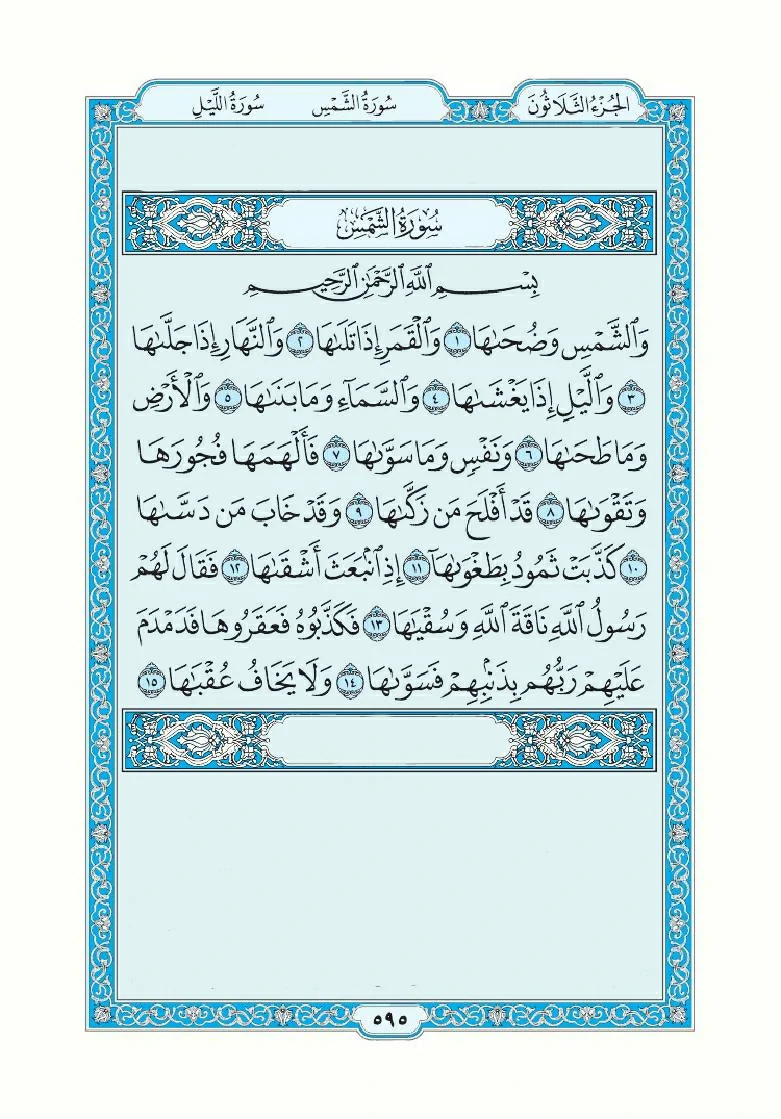 الجُزْءُ الثَّلَاثُونَ سُورَةُ الشَّمْسِ سُورَةُ اللَّيْلِ
سُورَةُ الشَّمْسِ
بِسْمِ ٱللَّهِ ٱلرَّحْمَٰنِ ٱلرَّحِيمِ
وَٱلشَّمْسِ وَضُحَىٰهَا ١ وَٱلْقَمَرِ إِذَا تَلَىٰهَا ٢ وَٱلنَّهَارِ إِذَا جَلَّىٰهَا
٣ وَٱلَّيْلِ إِذَا يَغْشَىٰهَا ٤ وَٱلسَّمَآءِ وَمَا بَنَىٰهَا ٥ وَٱلْأَرْضِ
وَمَا طَحَىٰهَا ٦ وَنَفْسٍ وَمَا سَوَّىٰهَا ٧ فَأَلْهَمَهَا فُجُورَهَا
وَتَقْوَىٰهَا ٨ قَدْ أَفْلَحَ مَن زَكَّىٰهَا ٩ وَقَدْ خَابَ مَن دَسَّىٰهَا
١٠ كَذَّبَتْ ثَمُودُ بِطَغْوَىٰهَآ ١١ إِذِ ٱنۢبَعَثَ أَشْقَىٰهَا ١٢ فَقَالَ لَهُمْ
رَسُولُ ٱللَّهِ نَاقَةَ ٱللَّهِ وَسُقْيَٰهَا ١٣ فَكَذَّبُوهُ فَعَقَرُوهَا فَدَمْدَمَ
عَلَيْهِمْ رَبُّهُم بِذَنۢبِهِمْ فَسَوَّىٰهَا ١٤ وَلَا يَخَافُ عُقْبَٰهَا ١٥
٥٩٥